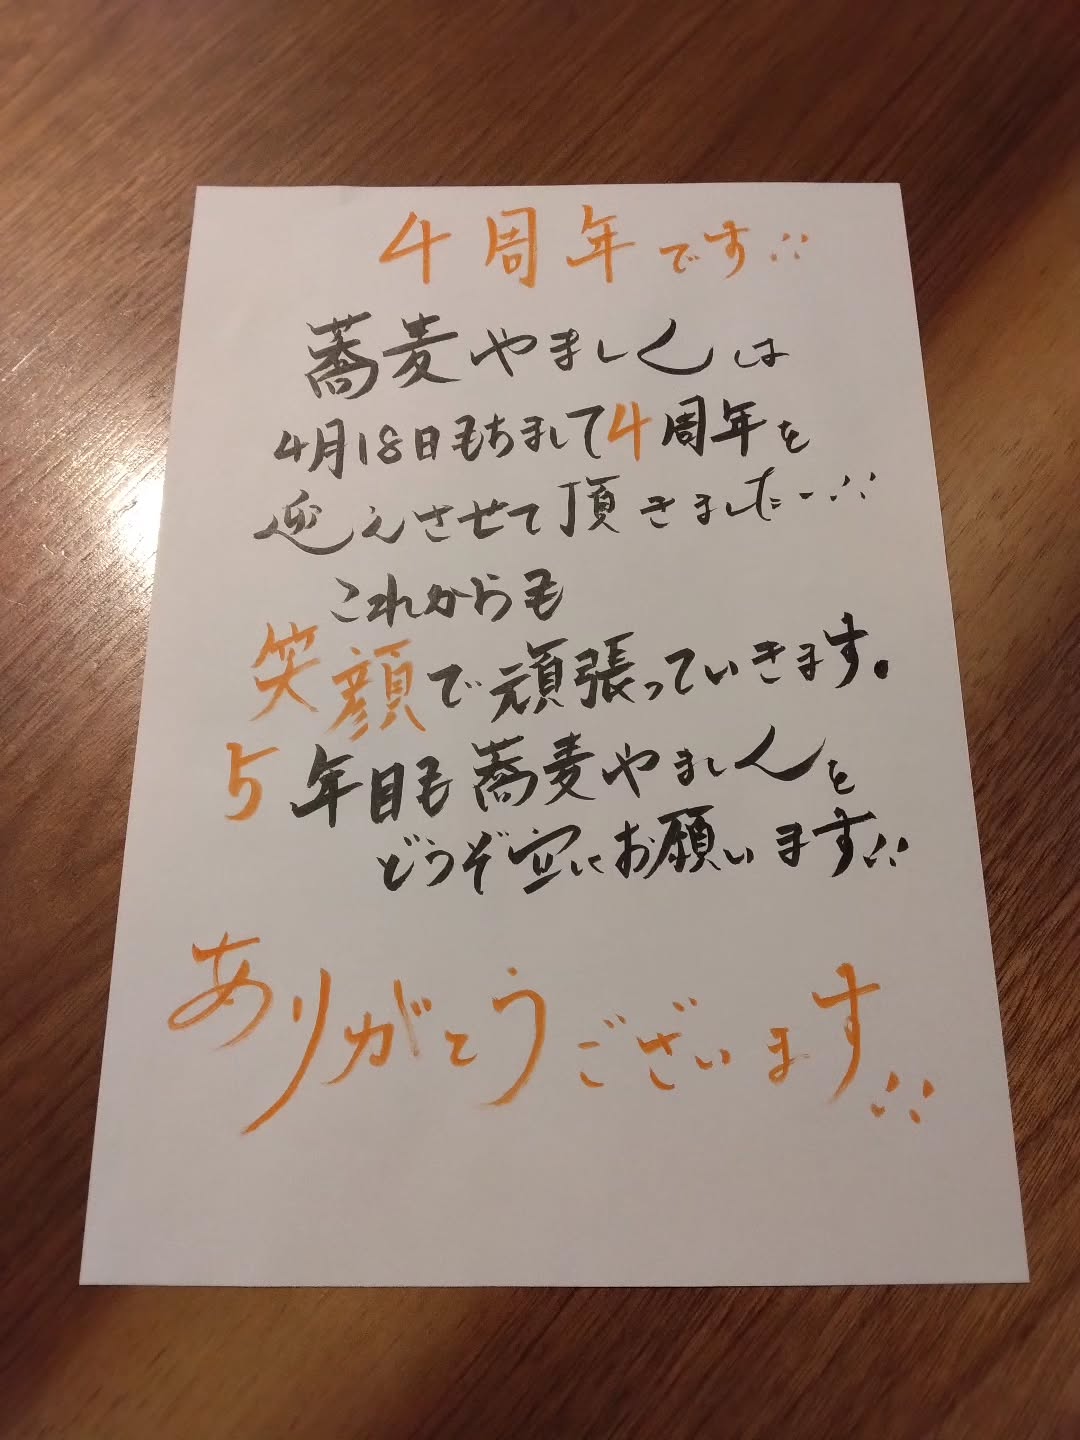 4周年です∴
蕎麦やましんは
4月18日もちまして4周年を
迎えさせて頂きましたー∴
これからも
笑顔で頑張っていきます。
5年目も蕎麦やましんを
どうぞ宜しくお願います∴
ありがとうございます∴